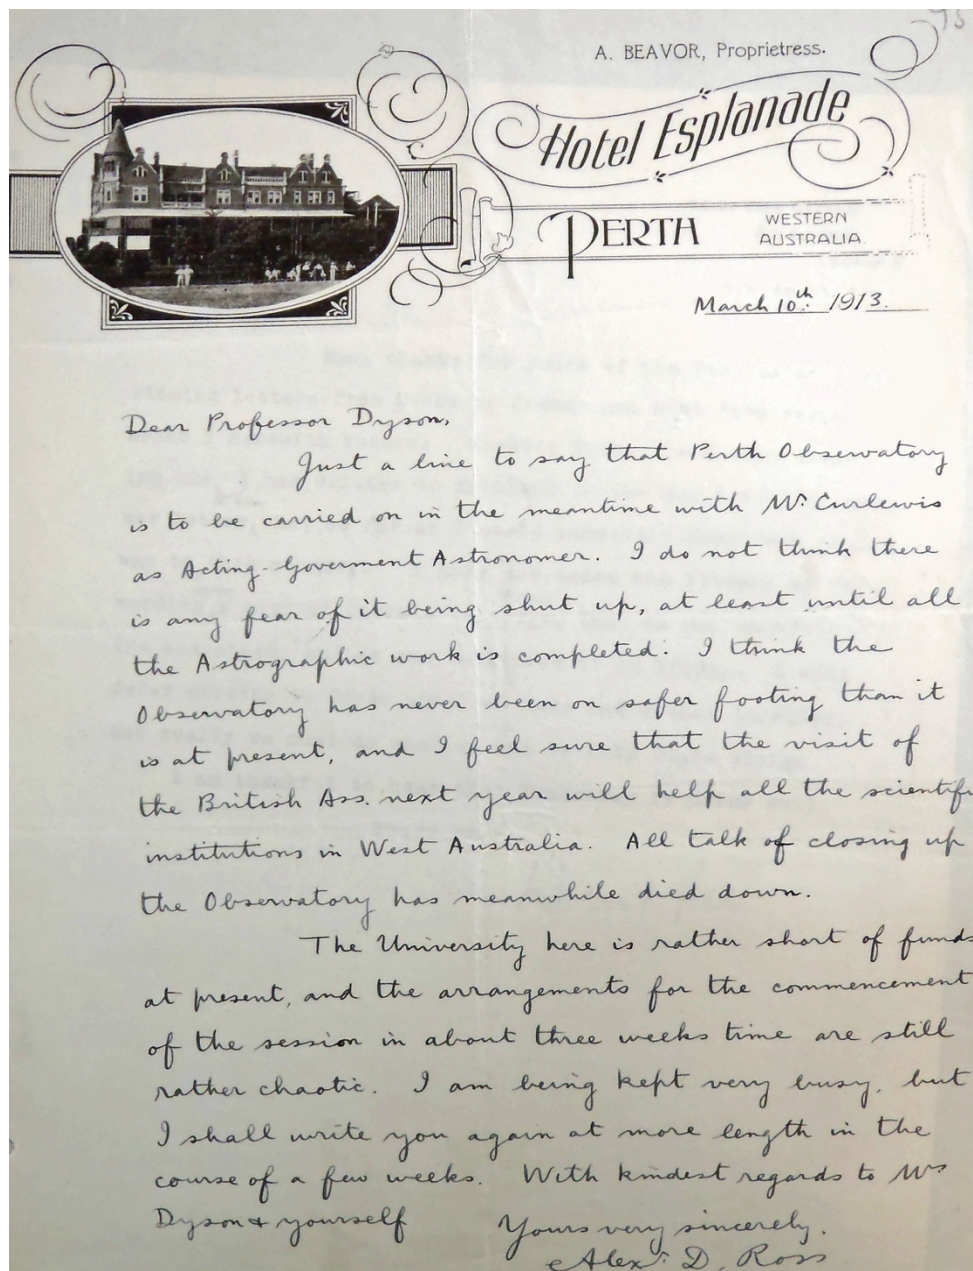 75
A. BEAVOR, Proprietress.
Hotel Esplanade
PERTH
WESTERN
AUSTRALIA.
March 10th 1913.
Dear Professor Dyson,
Just a line to say that Perth Observatory
is to be carried on in the meantime with Mr Curlewis
as Acting-Goverment Astronomer. I do not think there
is any fear of it being shut up, at least until all
the Astrographic work is completed. I think the
Observatory has never been on safer footing than it
is at present, and I feel sure that the visit of
the British Ass. next year will help all the scientifi
institutions in West Australia. All talk of closing up
the Observatory has meanwhile died down.
The University here is rather short of funds
at present, and the arrangements for the commencement
of the session in about three weeks time are still
rather chaotic. I am being kept very busy, but
I shall write you again at more length in the
course of a few weeks. With kindest regards to Mrs
Dyson & yourself
Yours very sincerely.
Alexr. D. Ross